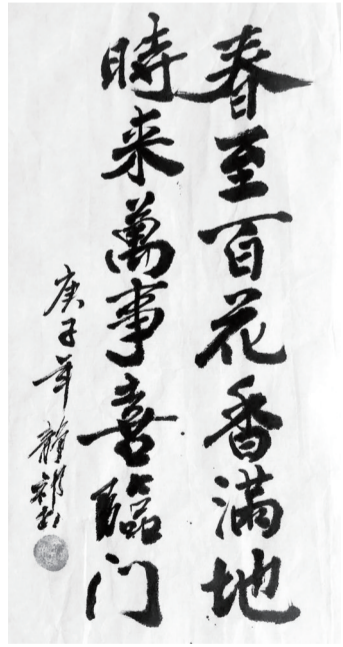 春至百花香滿地
時来萬事喜臨门
庚子年